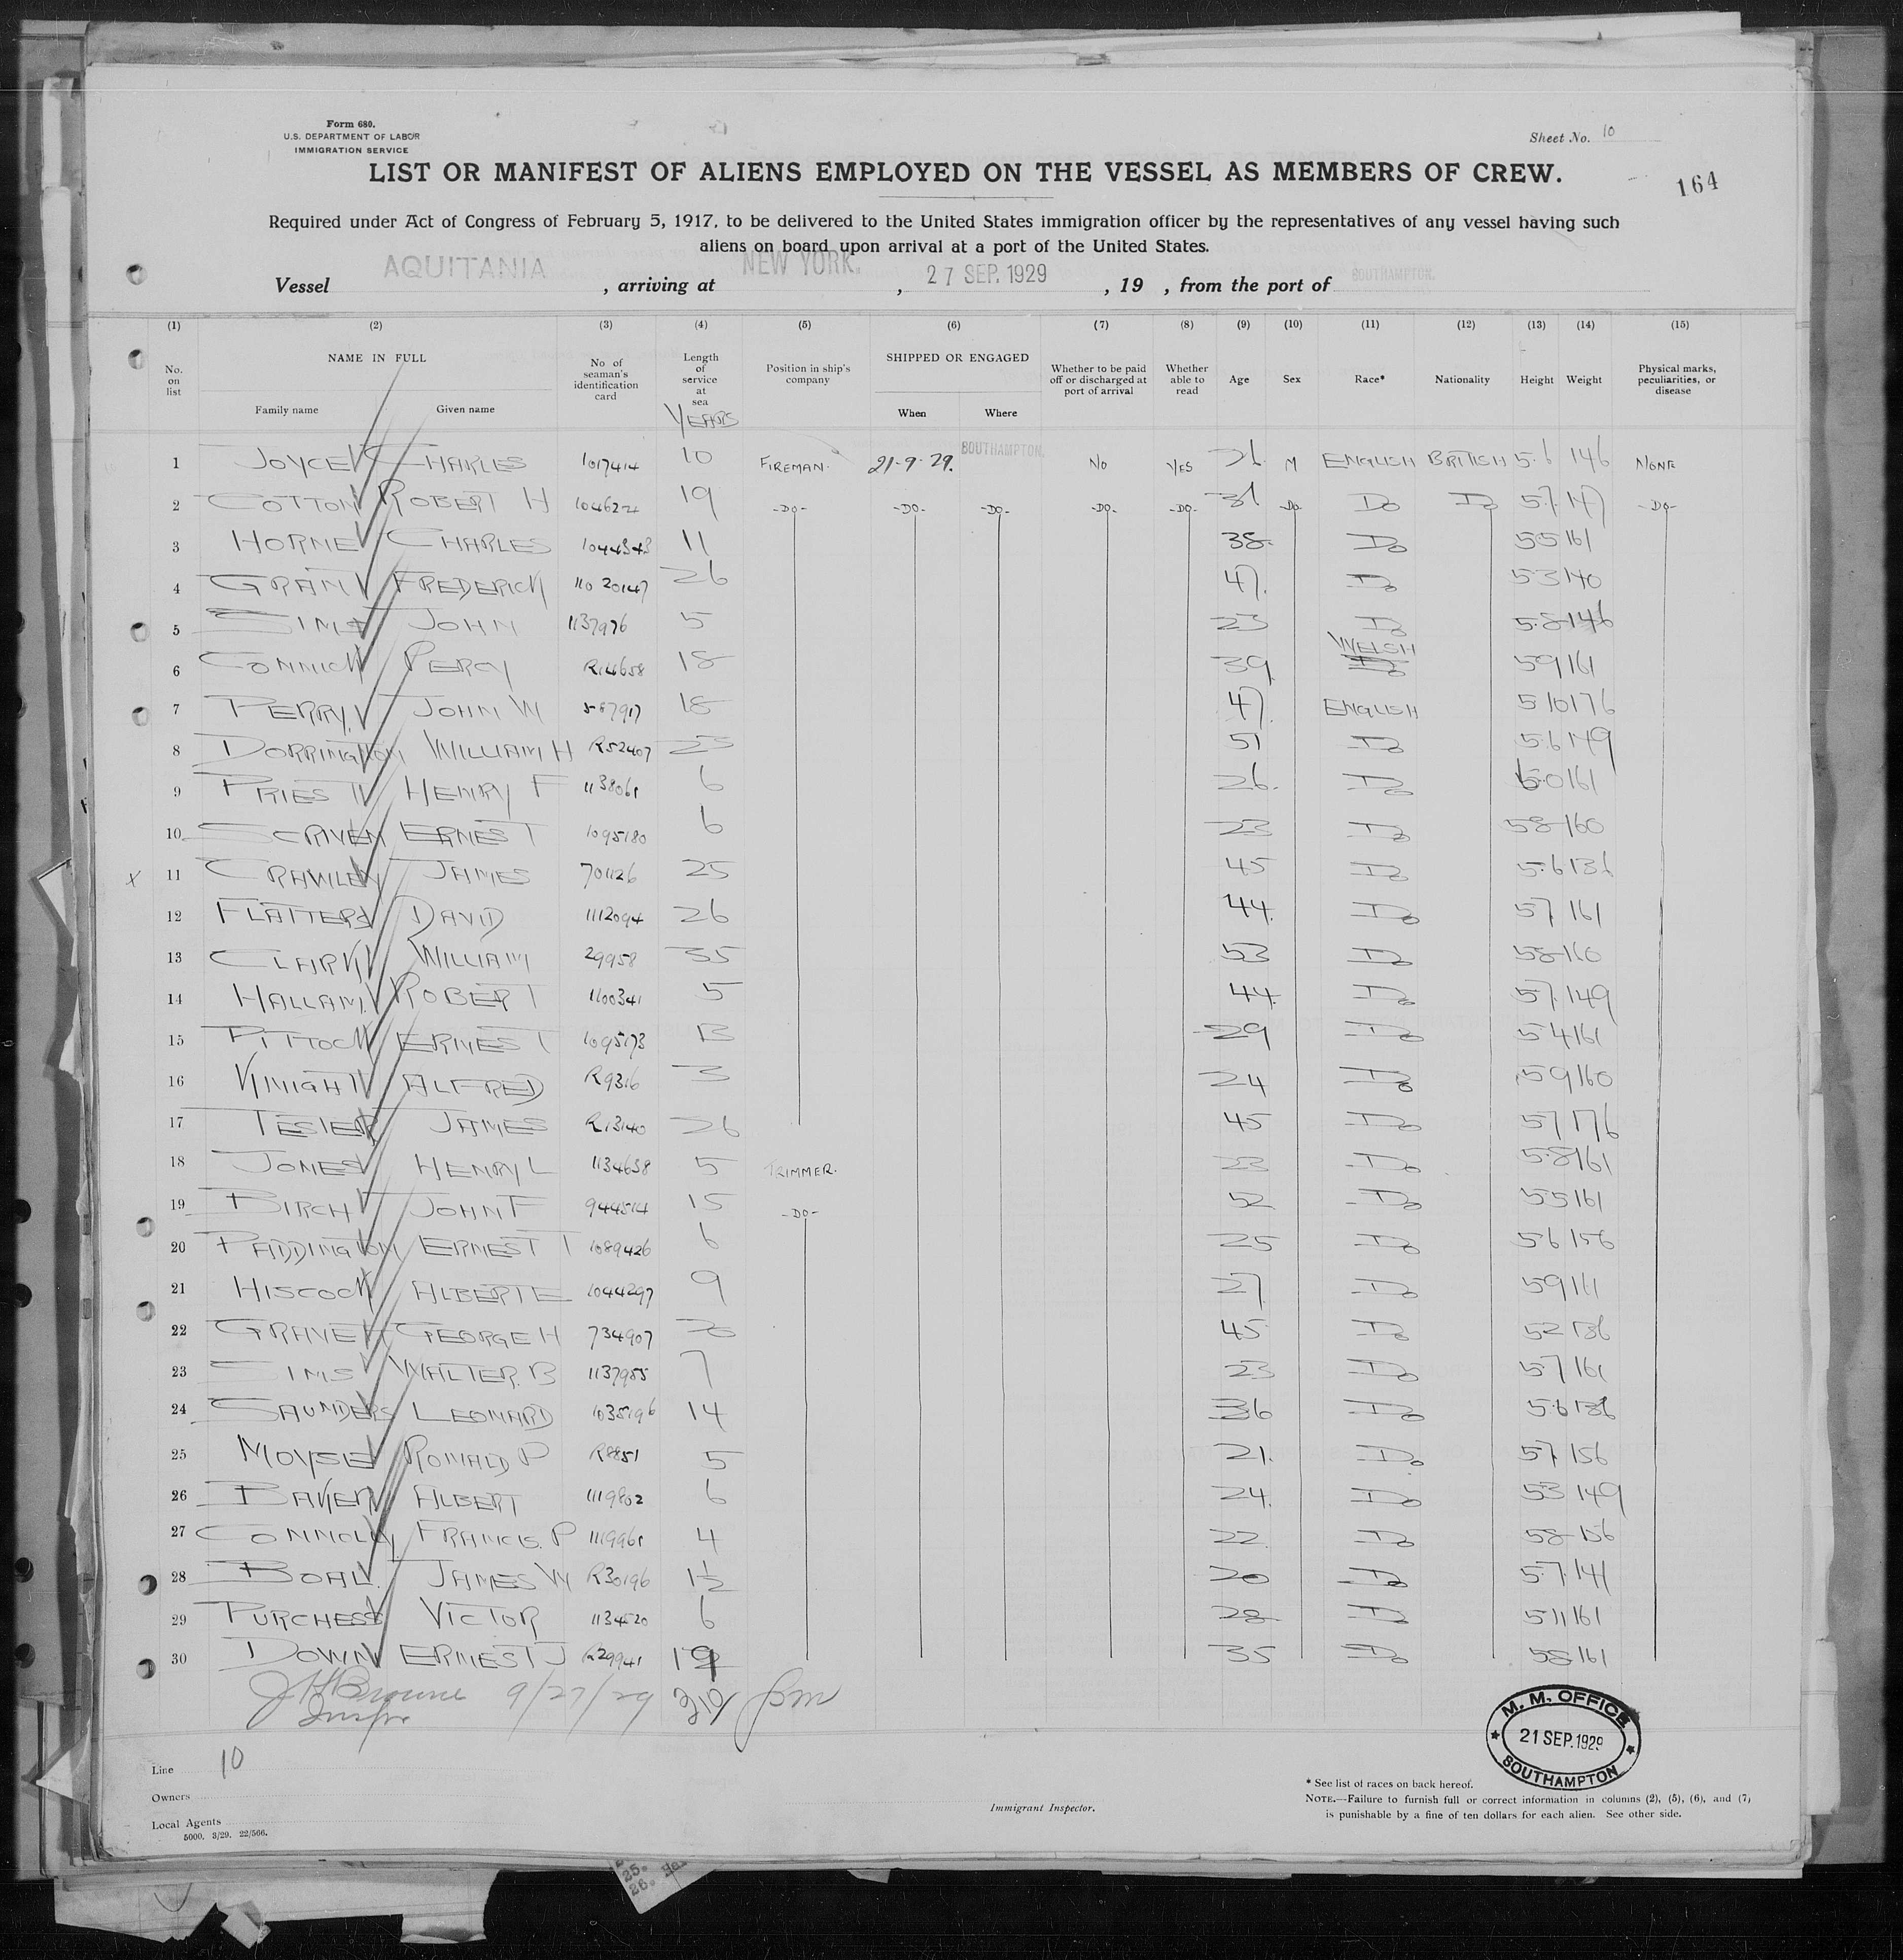 Form 680.
U.S. DEPARTMENT OF LABOR
IMMIGRATION SERVICE
Sheet No. 10
LIST OR MANIFEST OF ALIENS EMPLOYED ON THE VESSEL AS MEMBERS OF CREW.
164
Required under Act of Congress of February 5, 1917, to be delivered to the United States immigration officer by the representatives of any vessel having such
aliens on board upon arrival at a port of the United States.
Vessel AQUITANIA, arriving at NEW YORK., 27 SEP. 1929, 19 , from the port of SOUTHAMPTON.
(1) (2) (3) (4) (5) (6) (7) (8) (9) (10) (11) (12) (13) (14) (15)
No. on list NAME IN FULL Family name Given name No of seaman's identification card Length of service at sea YEARS Position in ship's company SHIPPED OR ENGAGED When Where Whether to be paid off or discharged at port of arrival Whether able to read Age Sex Race* Nationality Height Weight Physical marks, peculiarities, or disease
1 JOYCE CHARLES 1017414 10 FIREMAN. 21-9-29. SOUTHAMPTON. NO YES 26 M ENGLISH BRITISH 5.6 146 NONE
2 COTTON ROBERT H 19 -DO- -DO- -DO- -DO- -DO- DO DO DO 5.7 147 -DO-
3 HORNE CHARLES 11 38 DO 55 161
4 GRANT FREDERICK 26 47. DO 53 140
5 SIMS JOHN 1137976 5 23 DO 5.8 146
6 CONNICK PERCY R14658 18 39 WELSH 59 161
7 PERRY. JOHN W 587917 18 47. ENGLISH 5 10 176
8 DORRINGTON WILLIAM H R52407 23 51 DO 5.6 149
9 PRIEST HENRY F 1138061 6 26. DO 6.0 161
10 SCRIVEN ERNEST 1095180 6 23 DO 58 160
X 11 CRAWLEY JAMES 701126 25 45 DO 5.6 136
12 FLATTERS DAVID 1112094 26 44. DO 57 161
13 CLARK WILLIAM 29958 35 53 DO 58 160
14 HALLAM. ROBERT 1100341 5 44. DO 57. 149
15 PITTOCK ERNEST 1095173 13 29 DO 54 161
16 KNIGHT ALFRED R9316 3 24 DO 59 160
17 TESIER JAMES R13140 26 45 DO 57 176
18 JONES HENRY L 1134638 5 TRIMMER. 23 DO 5.8 161
19 BIRCH JOHN F 944514 15 -DO- 52 DO 55 161
20 PADDINGTON ERNEST T 1089426 6 25 DO 56 156
21 HISCOCK ALBERT E 1044297 9 27 DO 59
22 GRAVETT GEORGE H 734907 20 45 DO 52 136
23 SIMS WALTER. B 1137955 7 23 DO 57 161
24 SAUNDERS LEONARD 1035196 14 36 DO 5.6 136
25 MOYSE RONALD P R8851 5 21. DO 57 156
26 BAKER ALBERT 1119802 6 24. DO 53 149
27 CONNOLLY FRANCIS. P 1119961 4 22 DO 58 156
28 BOAL. JAMES W R30196 1½ 20 DO 5.7 141
29 PURCHESS VICTOR 1134520 6 28 DO 5 11 161
30 DOWN ERNEST J R29941 19 35 DO 58 161
J H Browne 9/27/29
Inspr
M. M. OFFICE
21 SEP. 1929
SOUTHAMPTON
Line 10
Owners
Local Agents
5000. 3/29. 22/566.
Immigrant Inspector.
* See list of races on back hereof.
NOTE.—Failure to furnish full or correct information in columns (2), (5), (6), and (7)
is punishable by a fine of ten dollars for each alien. See other side.
25.
26.